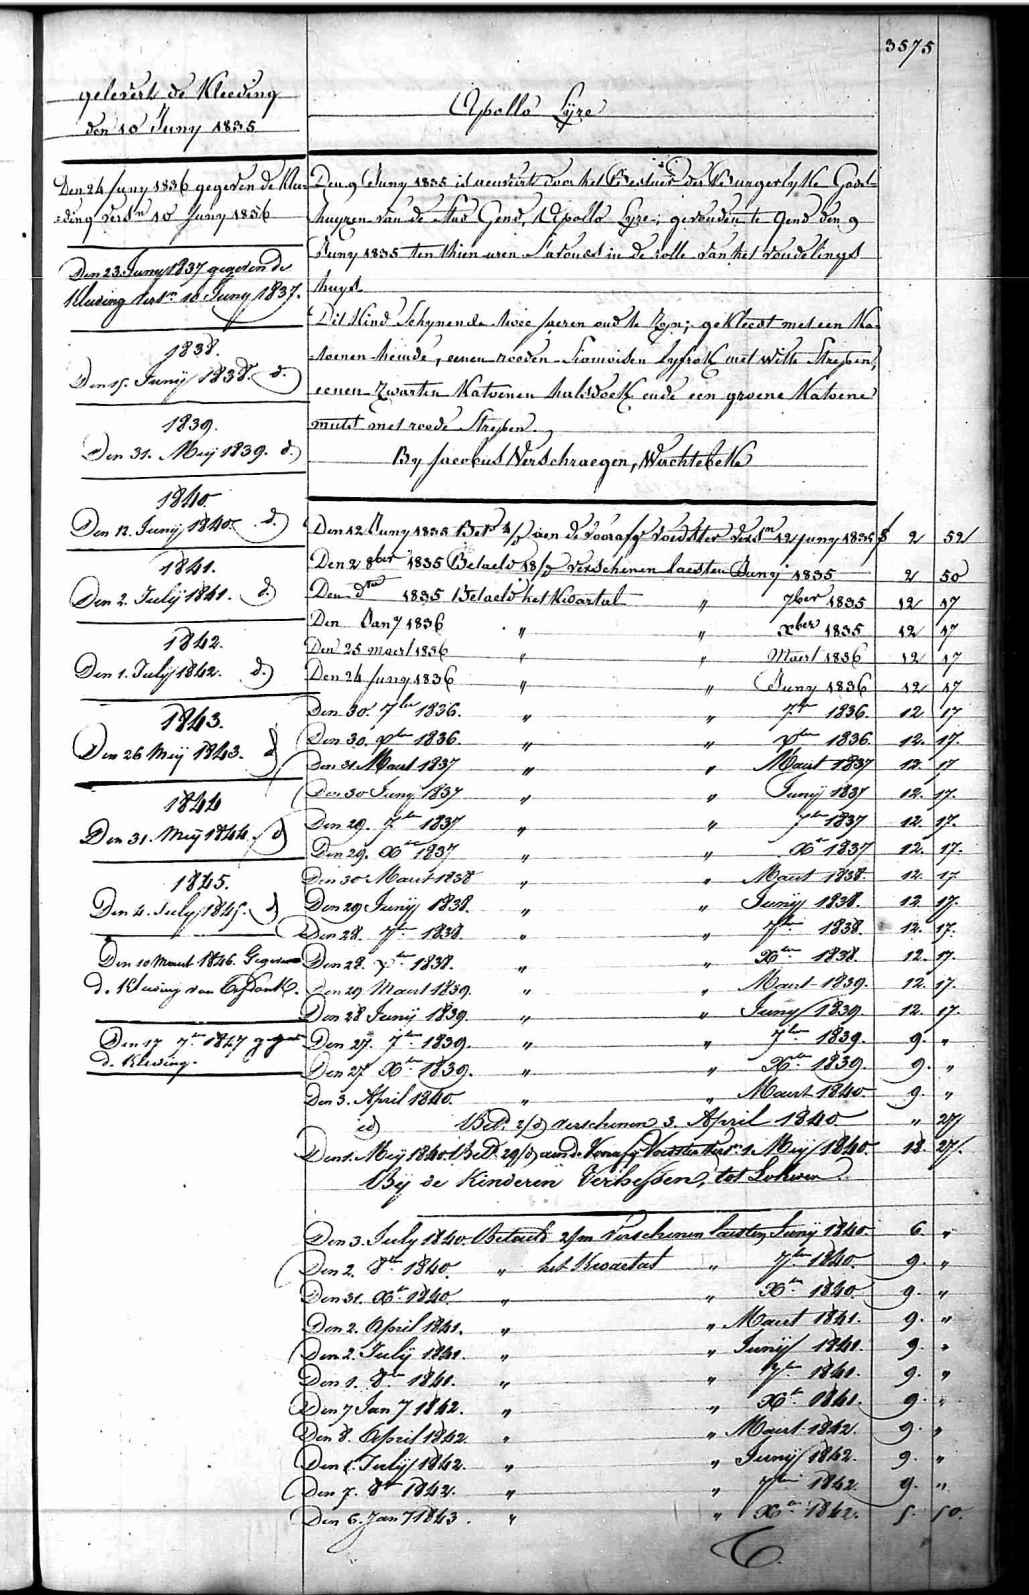 3575
gelevert de Kleeding
den 10 Juny 1835
Apollo Lyre
Den 24 Juny 1836 gegeven de Klee-
-ding versn 10 Juny 1836
Den 23 Juny 1837 gegeven de
Kleeding versn 10 Juny 1837.
1838.
Den 15. Junij 1838. d.)
1839.
Den 31. Meij 1839. d.)
1840.
Den 12. Junij 1840. d.)
1841.
Den 2. Julij 1841. d.)
1842.
Den 1. Julij 1842. d.)
1843.
Den 26 Meij 1843. d)
1844
Den 31. Meij 1844. d)
1845.
Den 4. July 1845. d)
Den 10 Maart 1846. Gegeven
d. Kleeding van
Den 17 7ber 1847 gegeven
d. Kleeding.
Den 9 Juny 1835 is door het Bestier der Burgerlyke Gods-
huyzen van de stad Gend, Apollo Lyre; gevonden te Gend den 9
Juny 1835 ten thien uren s'avonds in de rolle van het vondelings
huys.
Dit kind schynende twee jaeren oud te zyn; gekleed met een ka-
-toenen hemde, eenen rooden siamoisen lyfrok met witte strepen,
eenen zwarten katoenen halsdoek ende een groene katoene
muts met roode strepen.
By Jacobus Verschraegen, Wachtebeke
Den 12 Juny 1835 Bet. aen de voorafg. voedster versn 12 juny 1835 f 2 52
Den 2 8ber 1835 Betaeld 18/d verschenen laesten Juny 1835 2 50
Den do 1835 Betaeld het Kwartal " 7ber 1835 12 17
Den Jan7 1836 " " xber 1835 12 17
Den 25 maert 1836 " " Maert 1836 12 17
Den 24 Juny 1836 " " Juny 1836 12 17
Den 30. 7ber 1836. " " 7ber 1836. 12 17
Den 30. xber 1836. " " xber 1836. 12. 17.
Den 31. Maert 1837 " " Maert 1837 12. 17
Den 30 Juny 1837 " " Junij 1837 12. 17.
Den 29. 7ber 1837 " " 7ber 1837 12. 17.
Den 29. Xber 1837 " " Xber 1837 12. 17.
Den 30 Maert 1838 " " Maert 1838. 12. 17
Den 29 Junij 1838. " " Junij 1838. 12 17.
Den 28. 7ber 1838. " " 7ber 1838. 12. 17.
Den 28. Xber 1838. " " Xber 1838. 12. 17.
Den 29 Maert 1839. " " Maert 1839. 12. 17.
Den 28 Junij 1839. " " Juny 1839. 12. 17.
Den 27. 7ber 1839. " " 7ber 1839. 9. "
Den 27 Xber 1839. " " Xber 1839. 9. "
Den 3. April 1840. " " Maert 1840. 9. "
id) Bet. 2/d) verschenen 3. April 1840 " 27
Den 1. Meij 1840. Bet. 29/d) aen de Vorafg Voedster versn 1. Meij 1840. 12. 27.
Bij de Kinderen Verhessen, tot Lokeren.
Den 3. July 1840. Betaeld 2/m verschenen laesten Junij 1840. 6. "
Den 2. 8ber 1840. " het Kwartal " 7ber 1840. 9. "
Den 31. Xber 1840. " " Xber 1840. 9. "
Den 2. April 1841. " " Maert 1841. 9. "
Den 2. Julij 1841. " " Junij 1841. 9. "
Den 1. 8ber 1841. " " 7ber 1841. 9. "
Den 7 Jan7 1842. " " Xber 1841. 9. "
Den 8. April 1842. " " Maert 1842. 9. "
Den 1. Julij 1842. " " Junij 1842. 9. "
Den 7. 8ber 1842. " " 7ber 1842. 9. "
Den 6. Jan7 1843. " " Xber 1842. 5. 50.